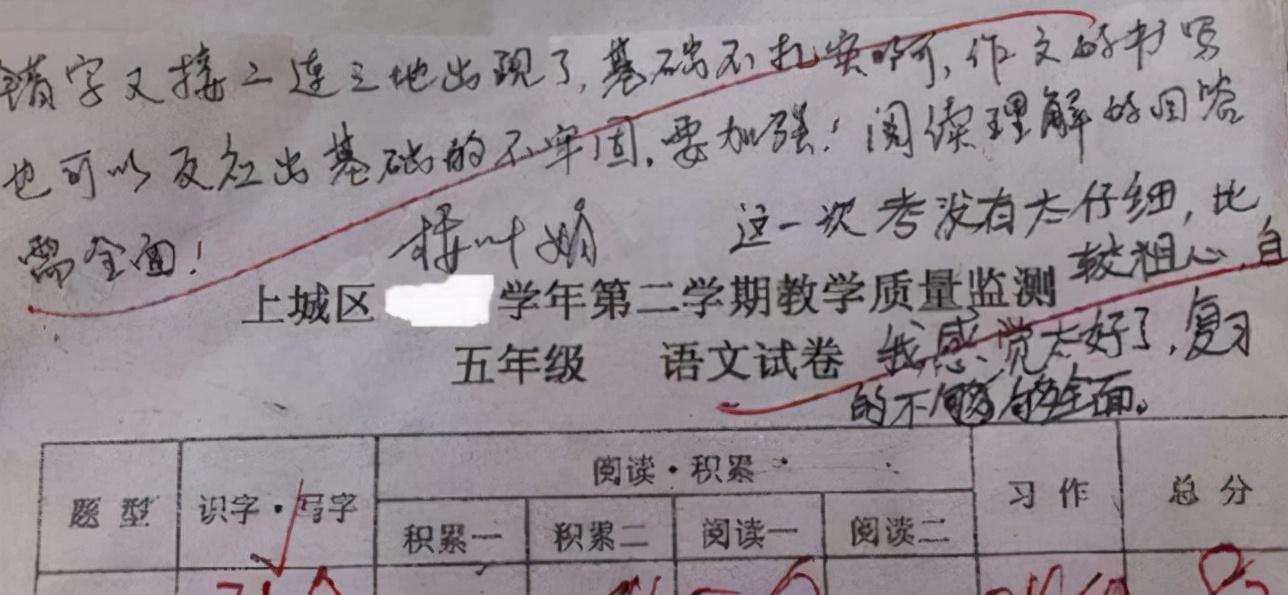 错字又接二连三地出现了,基础不扎实啊,作文的书写
也可以反应出基础的不牢固,要加强!阅读理解的回答
需全面!
这一次考没有太仔细,比
较粗心,自
我感觉太好了,复习
的不够全面。
上城区 学年第二学期教学质量监测
五年级 语文试卷
题型 识字·写字 阅读·积累 习作 总分
积累一 积累二 阅读一 阅读二